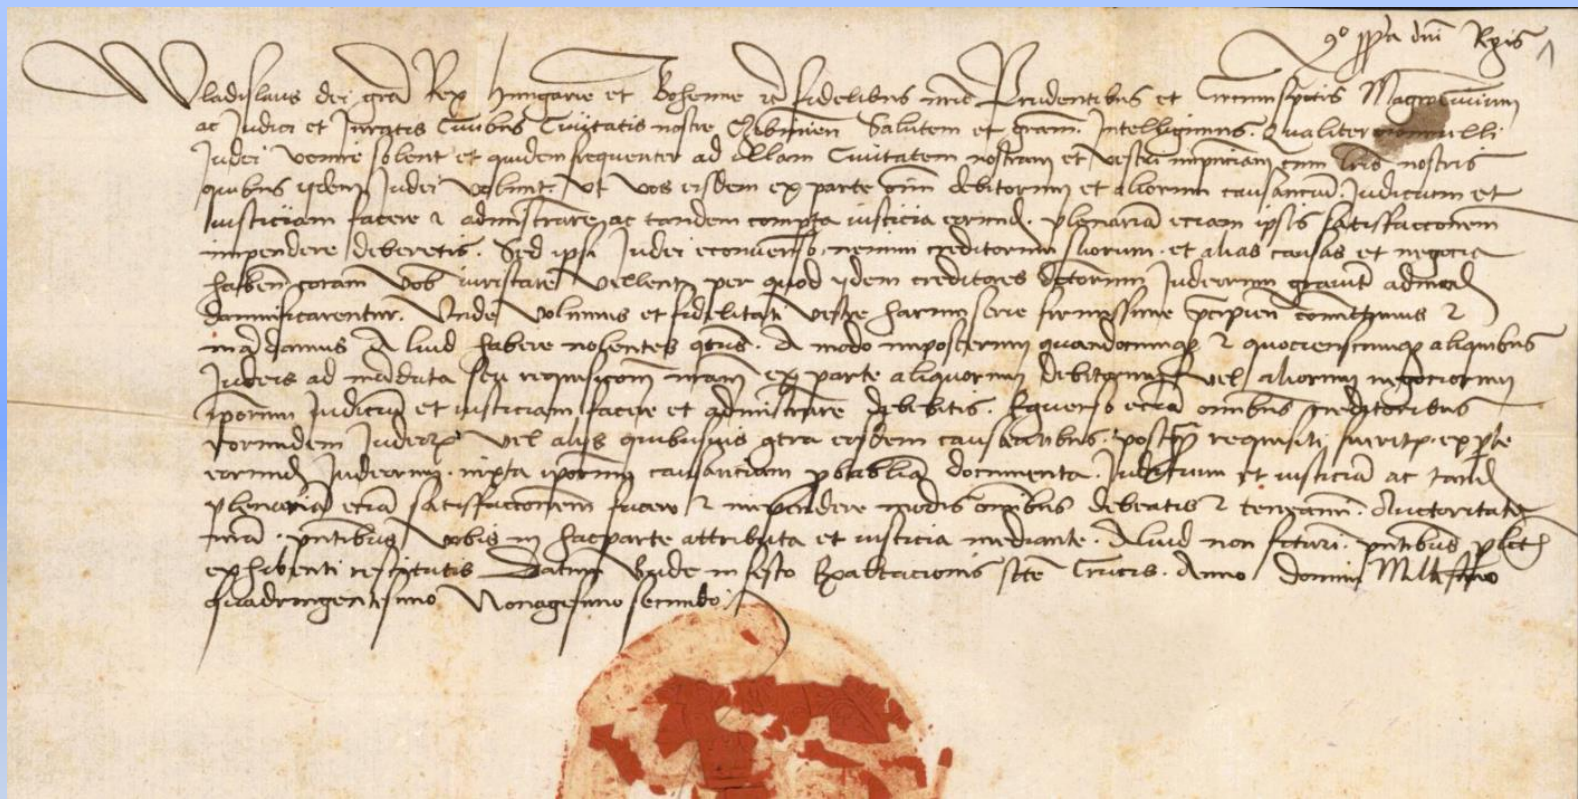 Wladislaus dei gra Rex Hungarie et Bohemie etc fidelibus nris Prudentibus et Circumspectis Magrocivium
ac Judici et Juratis Civibus Civitatis nostre Cibinien Salutem et gram. Intelleximus. Qualiter nonnulli
Judei venire solent et quidem frequenter ad illam Civitatem nostram et vestri in pnciam cum lris nostris
quibus ydem Judei volunt. ut vos eisdem ex parte oim debitorum et aliorum causancium. Judicium et
Justiciam facere et administrare ac tandem compta iusticia eorund. plenariam eciam ipsis satisfaccionem
impendere deberetis. Sed ipsi Judei econverso. nemini creditorum suorum. et alias causas et negocia
haben coram vob iuristare vellent per quod ydem creditores dctorum Judeorum gravit admod
damnificarentur. Unde volumus et fidelitati vestre harum serie firmissime pcipien comittimus et
madamus Aliud habere nolentes. A modo imposterum quandocumq et quocienscumq aliquibus
Judeis ad mdata seu requisicom nram ex parte aliquorum debitorum vel aliorum negociorum
iporum Judiciu et iusticiam facere et administrare debebitis. Equerso ecia omibus creditoribus
eorundem Judeor vel alys quibusvis contra eosdem causantibus. postq requisiti fueritis ex pte
eorund Judeorum. iuxta iporum causanciam pbabilia documenta. Judicium et iusticia ac tand
plenaria ecia satisfaccionem facere et impendere modis omibus debeatis et teneamini. Auctoritate
nra. pntibus vobis in hac parte attributa et iusticia mediante. Aliud non facturi. pntibus plectis
exhibenti restitutis Datum Bude in festo Exaltacionis scte Crucis. Anno domini Millesimo
quadringentesimo Nonagesimo secundo.